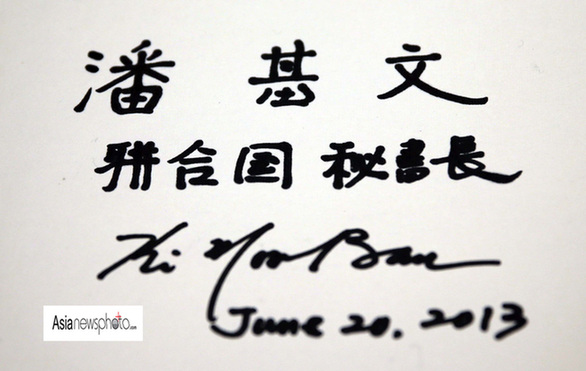 潘基文
聨合国 秘書長
Ki Moon Ban
June 20, 2013
Asianewsphoto.com